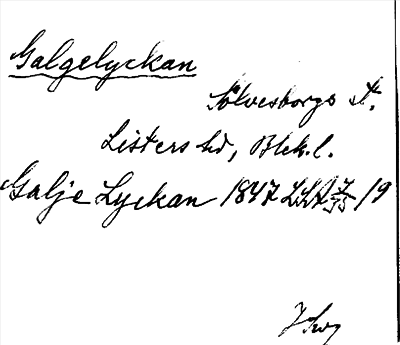 Galgelyckan
Sölvesborgs st.
Listers hd, Blek.l.
Galje Lyckan 1847 LSA 7/35 /9